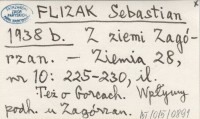 FLIZAK Sebastian
1938 b. Z ziemi Zagó-
rzan. – Ziemia 28,
nr 10: 225-230, il.
Też o Gorcach. Wpływy
podh. u Zagórzan.